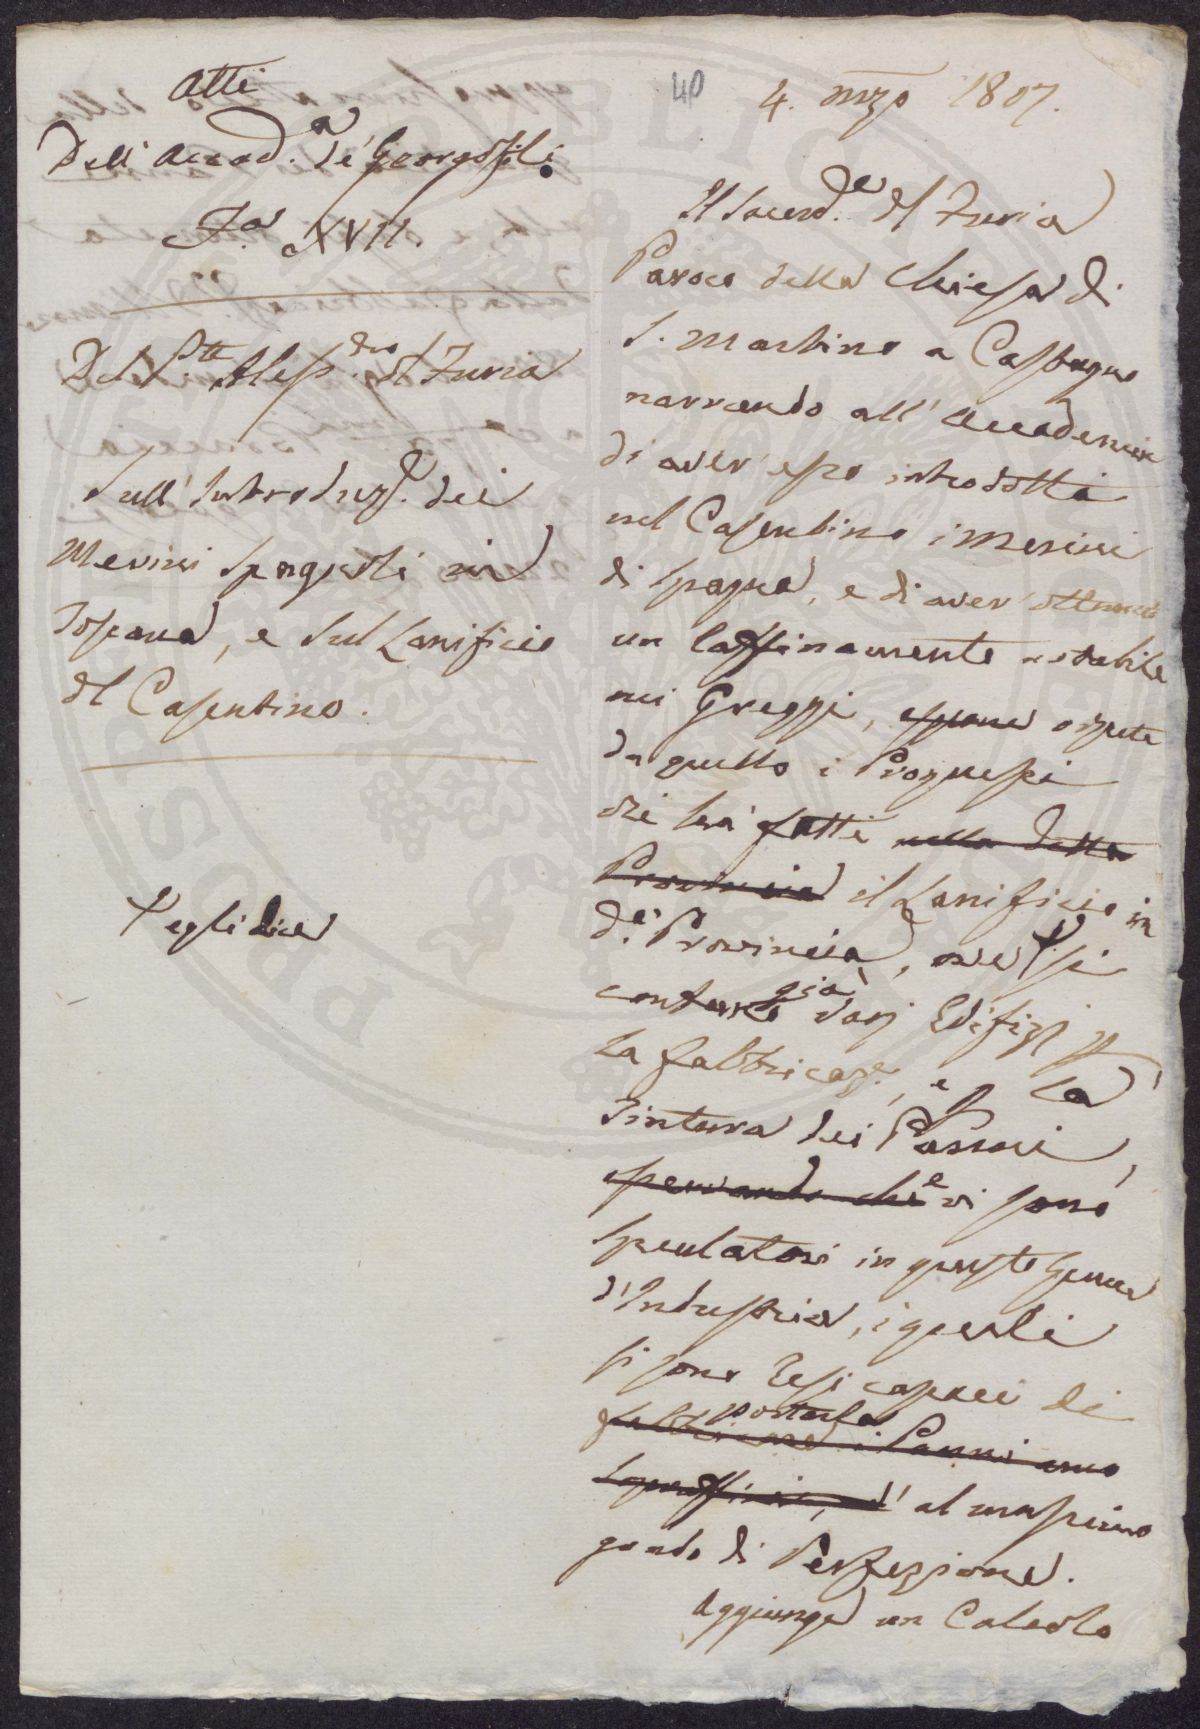 Atti
Dell' Accad.a de' Georgofili
F.a XVII.
Del P.tte Aless.dro del Furia
Sull' Introduz.e dei
Merini Spagnoli in
Toscana, e sul Lanificio
del Casentino.
† egli dice
40
4. mzo 1807.
Il Sacerd.e del Furia
Paroco della Chiesa di
S. Martino a Castagno
narrando all' Accademia
di aver esso introdotti
nel Casentino i Merini
di Spagna, e di aver ottenuto
un raffinamento notabile
nei Greggi, espone
da quello i Progressi
che ha fatti nella detta
Provincia il Lanificio in
d.a Provincia, ove † si
contano già varj Edifizj p
la fabbricaz.e, e p la
Tintura dei Panni,
osservando che e vi sono
Speculatori in questo Genere
d'Industria, i quali
si sono resi capaci di
portarla
fabbricare i Panni anco
sopraffini, al massimo
grado di Perfezione.
Aggiunge un Calcolo